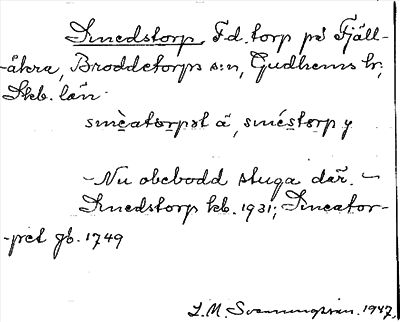 Smedstorp F.d. torp på Fjäll-
-åkra, Broddetorps s:n, Gudhems hr,
Skb. län.
smèatorpət ä, sméstorp y
- Nu obebodd stuga där. -
Smedstorp kb. 1931; Smeator-
-pet gb. 1749
L.M. Svenungsson. 1947.